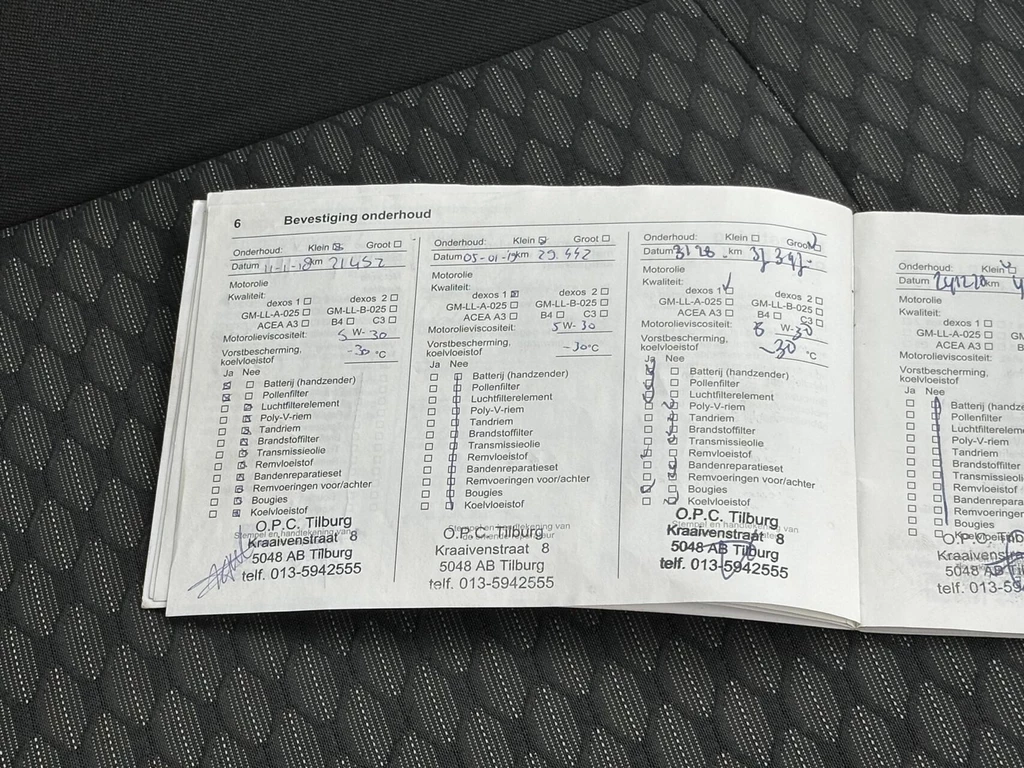 6 Bevestiging onderhoud
Onderhoud: Klein Groot
Datum 11-1-18 km 21452
Motorolie
Kwaliteit:
dexos 1 dexos 2
GM-LL-A-025 GM-LL-B-025
ACEA A3 B4 C3
Motorolieviscositeit: 5 W- 30
Vorstbescherming, koelvloeistof -30 °C
Ja Nee
Batterij (handzender)
Pollenfilter
Luchtfilterelement
Poly-V-riem
Tandriem
Brandstoffilter
Transmissieolie
Remvloeistof
Bandenreparatieset
Remvoeringen voor/achter
Bougies
Koelvloeistof
Stempel en handtekening van
O.P.C. Tilburg
Kraaivenstraat 8
5048 AB Tilburg
telf. 013-5942555
Onderhoud: Klein Groot
Datum 05-01-19 km 29.442
Motorolie
Kwaliteit:
dexos 1 dexos 2
GM-LL-A-025 GM-LL-B-025
ACEA A3 B4 C3
Motorolieviscositeit: 5 W- 30
Vorstbescherming, koelvloeistof -30 °C
Ja Nee
Batterij (handzender)
Pollenfilter
Luchtfilterelement
Poly-V-riem
Tandriem
Brandstoffilter
Transmissieolie
Remvloeistof
Bandenreparatieset
Remvoeringen voor/achter
Bougies
Koelvloeistof
Stempel en handtekening van
O.P.C. Tilburg
Kraaivenstraat 8
5048 AB Tilburg
telf. 013-5942555
Onderhoud: Klein Groot
Datum km
Motorolie
Kwaliteit:
dexos 1 dexos 2
GM-LL-A-025 GM-LL-B-025
ACEA A3 B4 C3
Motorolieviscositeit: W-30
Vorstbescherming, koelvloeistof -30 °C
Ja Nee
Batterij (handzender)
Pollenfilter
Luchtfilterelement
Poly-V-riem
Tandriem
Brandstoffilter
Transmissieolie
Remvloeistof
Bandenreparatieset
Remvoeringen voor/achter
Bougies
Koelvloeistof
Stempel en handtekening van
O.P.C. Tilburg
Kraaivenstraat 8
5048 AB Tilburg
telf. 013-5942555
Onderhoud: Klein
Datum km
Motorolie
Kwaliteit:
dexos 1
GM-LL-A-025 GM
ACEA A3
Motorolieviscositeit:
Vorstbescherming, koelvloeistof
Ja Nee
Batterij (handze
Pollenfilter
Luchtfilterelem
Poly-V-riem
Tandriem
Brandstoffilter
Transmissieoli
Remvloeistof
Bandenrepara
Remvoeringen
Bougies
Koelvloeistof
O.P.C. Tilb
Kraaivenst
5048 AB Til
telf. 013-59